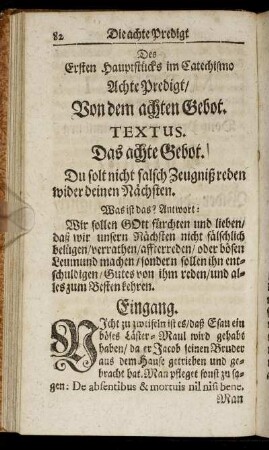 82 Die achte Predigt
Des
Ersten Hauptstücks im Catechismo
Achte Predigt/
Von dem achten Gebot.
TEXTUS.
Das achte Gebot.
Du solt nicht falsch Zeugniß reden
wider deinen Nächsten.
Was ist das? Antwort:
Wir sollen GOtt fürchten und lieben/
daß wir unsern Nächsten nicht fälschlich
belügen/verrathen/affterreden/oder bösen
Leumund machen/sondern sollen ihn ent-
schuldigen/Gutes von ihm reden/und al-
les zum Besten kehren.
Eingang.
NIcht zu zweifeln ist es/daß Esau ein
böses Läster-Maul wird gehabt
haben/da er Jacob seinen Bruder
aus dem Hause getrieben und ge-
bracht hat. Man pfleget sonst zu sa-
gen: De absentibus & mortuis nil nisi bene.
Man